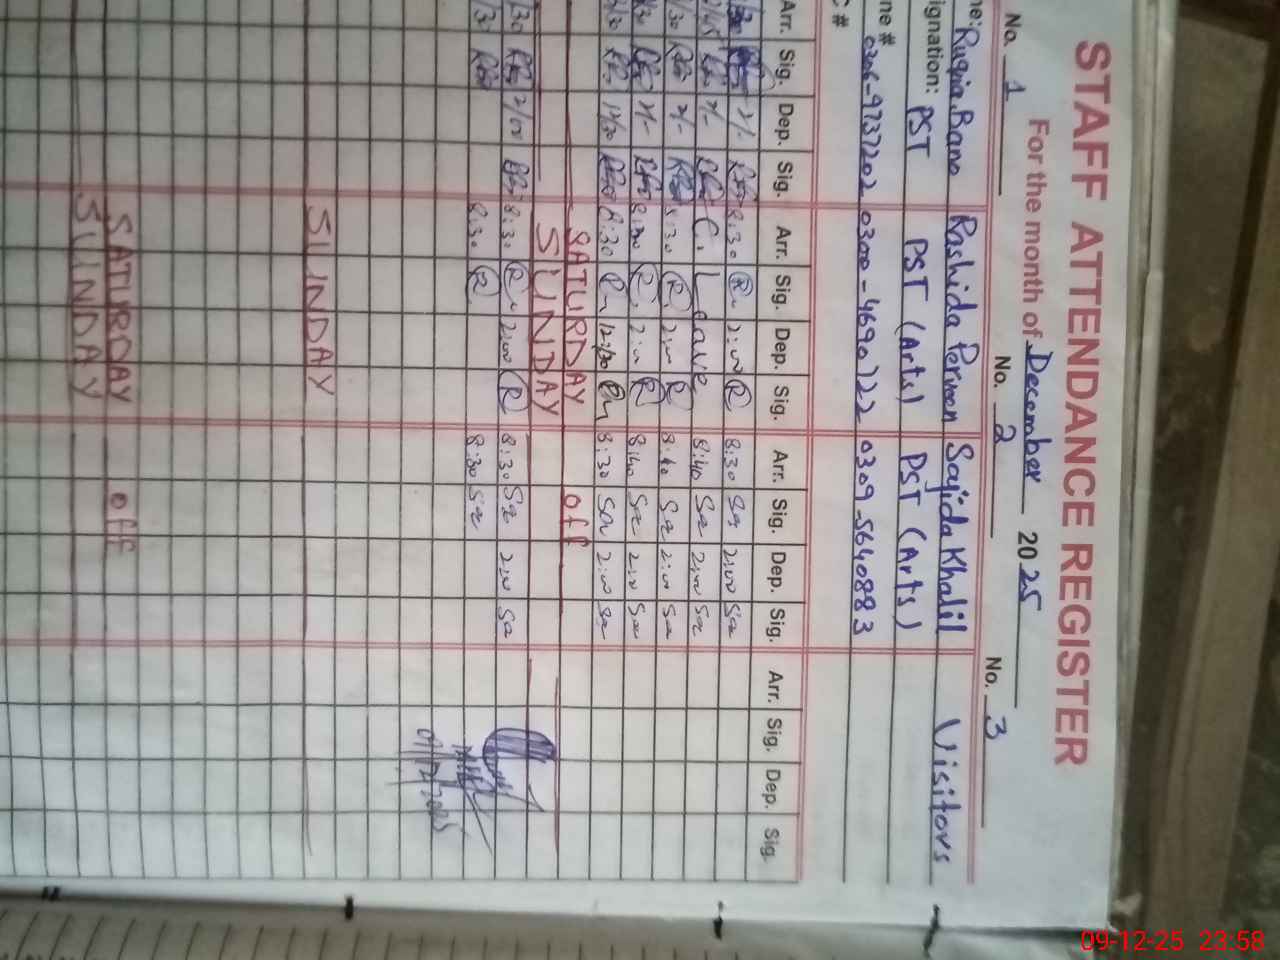 STAFF ATTENDANCE REGISTER
For the month of December 2025
No. 1 No. 2 No. 3
Ruqia Bano Rashida Perveen Sajida Khalil Visitors
ignation: PST PST (Arts) PST (Arts)
ne # 0306-9737202 0300-4690722 0309-5640883
C #
Arr. Sig. Dep. Sig. Arr. Sig. Dep. Sig. Arr. Sig. Dep. Sig. Arr. Sig. Dep. Sig.
2/- 8:30 R 2:00 R 8:30 Sa 2:00 Sa
2/- C. Leave 8:40 Sa 2:00 Sa
/30 2/- 8:30 R 2:00 R 8:40 Sa 2:00 Sa
/30 2/- 8:30 R 2:00 R 8:40 Sa 2:00 Sa
/30 12/30 8:30 12:30 8:30 Sa 2:00 Sa
SATURDAY off
SUNDAY
/30 2/00 8:30 R 2:00 R 8:30 Sa 2:00 Sa
/30 8:30 R 8:30 Sa
09/12/2025
SUNDAY
SATURDAY off
SUNDAY
09-12-25 23:58